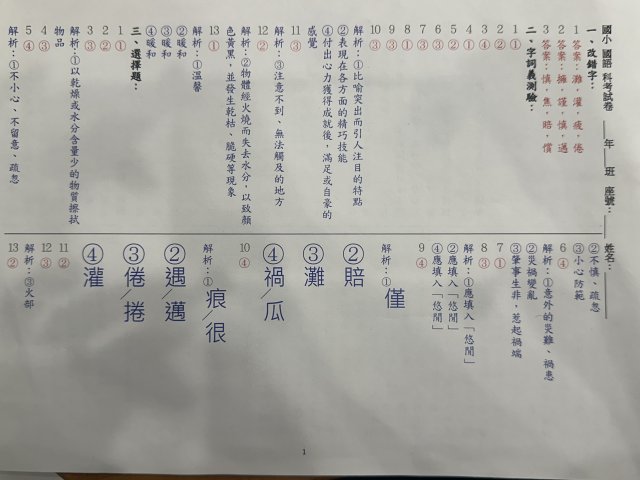 國小 國語 科考試卷 年 班 座號: 姓名:
一、改錯字:
1 答案:灘,灌,疲,倦
2 答案:擁,謹,慎,邁
3 答案:慎,焦,賠,償
二、字詞義測驗:
1 ①
2 ②
3 ④
4 ①
5 ②
6 ①
7 ③
8 ①
9 ③
10 ③
解析:①比喻突出而引人注目的特點
②表現在各方面的精巧技能
④付出心力獲得成就後,滿足或自豪的
感覺
11 ③
解析:③注意不到、無法觸及的地方
12 ②
解析:②物體經火燒而失去水分,以致顏
色黃黑,並發生乾枯、脆硬等現象
13 ①
解析:①溫馨
②暖和
③暖和
④暖和
三、選擇題:
1 ①
2 ②
3 ③
解析:①以乾燥或水分含量少的物質擦拭
物品
4 ③
5 ④
解析:①不小心、不留意、疏忽
②不慎、疏忽
③小心防範
6 ④
解析:①意外的災難、禍患
②災禍變亂
③肇事生非,惹起禍端
7 ①
8 ③
解析:①應填入「悠閒」
②應填入「悠閒」
④應填入「悠閒」
9 ④
解析:①僅
②賠
③灘
④禍/瓜
10 ④
解析:①痕/很
②遇/邁
③倦/捲
④灌
11 ②
12 ③
解析:③火部
13 ②
1